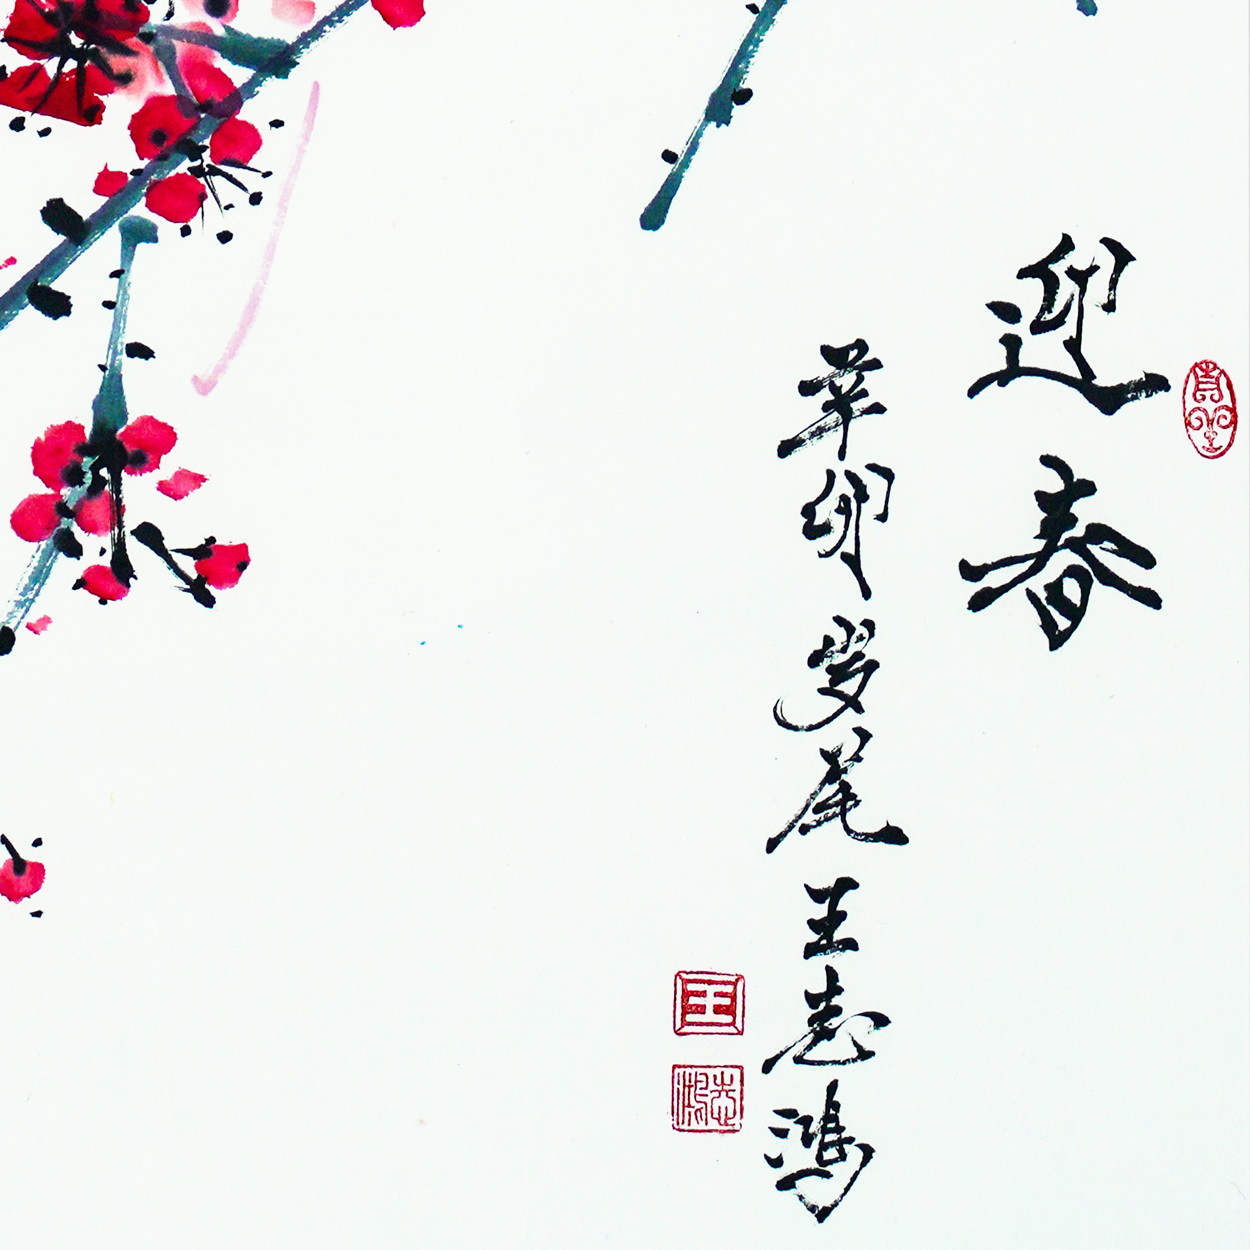 迎春
辛卯岁尾王志鸿
王
志鸿